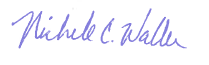 Michele C. Waller